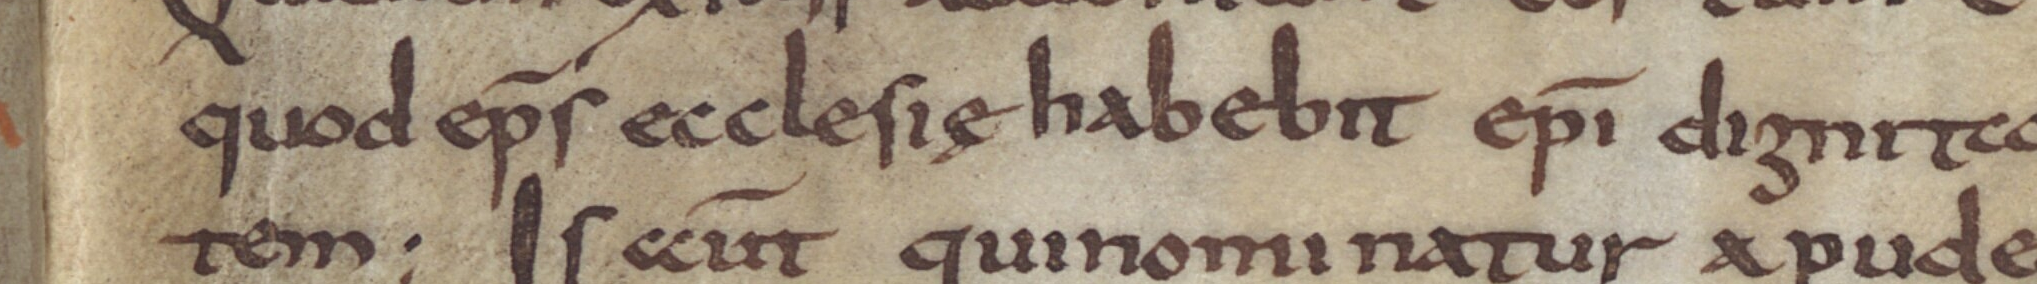 quod ep̄s ecclesię habebit ep̄i dignita
tem; Is aūt qui nominatur apud e